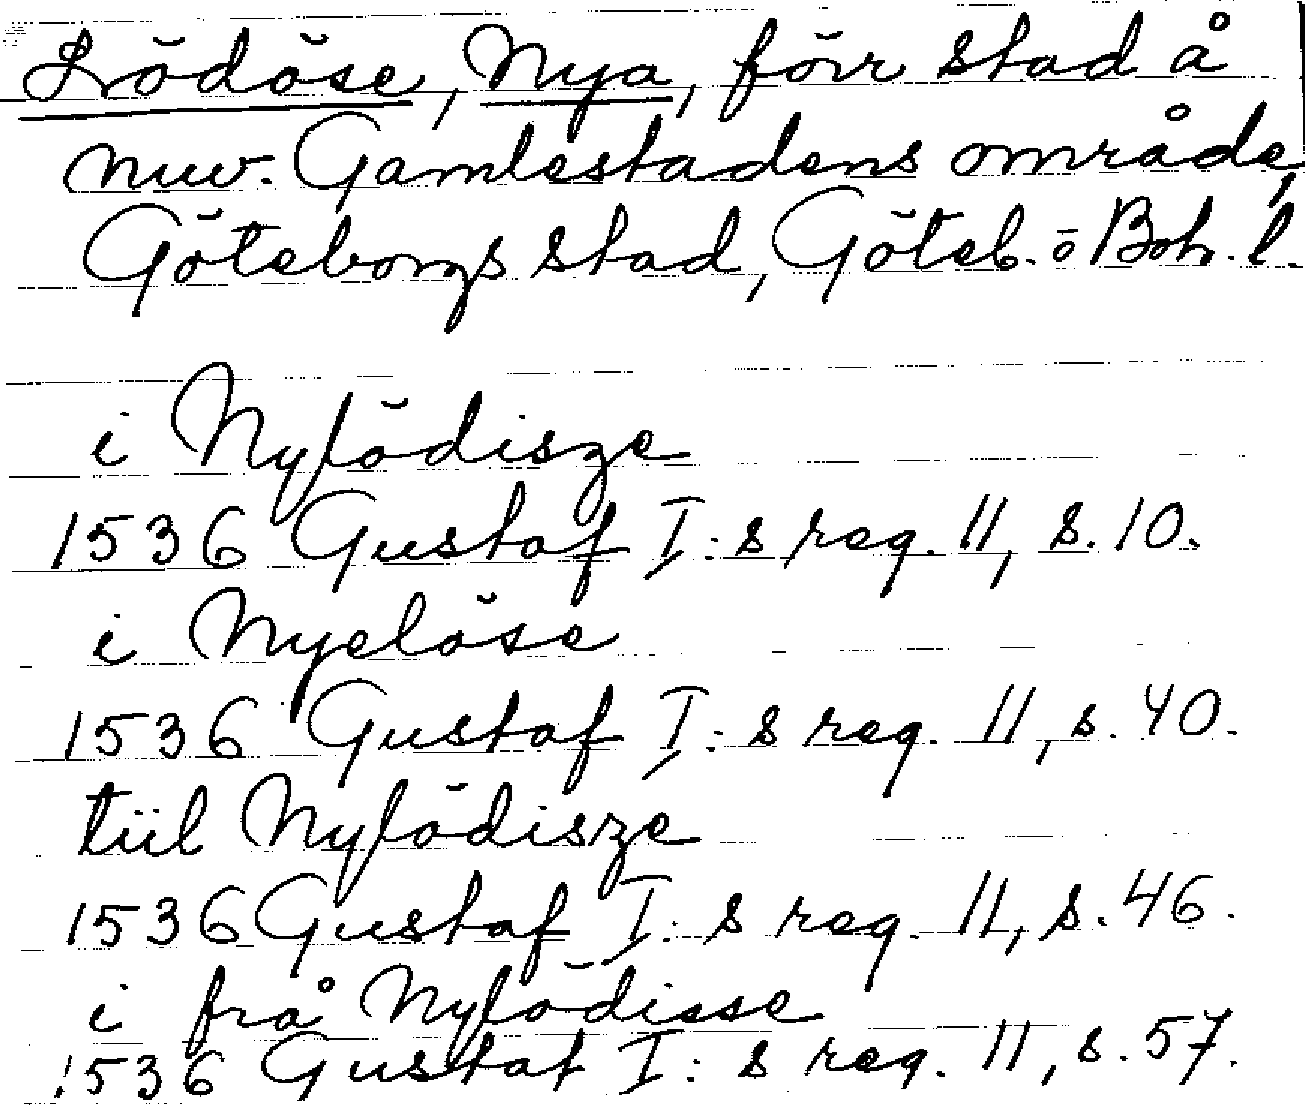 Lödöse, Nya, förr stad å
nuv. Gamlestadens område,
Göteborgs stad, Göteb. o Boh. l.
i Nylödisze
1536 Gustaf I:s reg. 11, s. 10.
i Nyelöse
1536 Gustaf I:s reg. 11, s. 40.
tiil Nylödisze
1536 Gustaf I:s reg. 11, s. 46.
i frå Nylödisse
1536 Gustaf I:s reg. 11, s. 57.